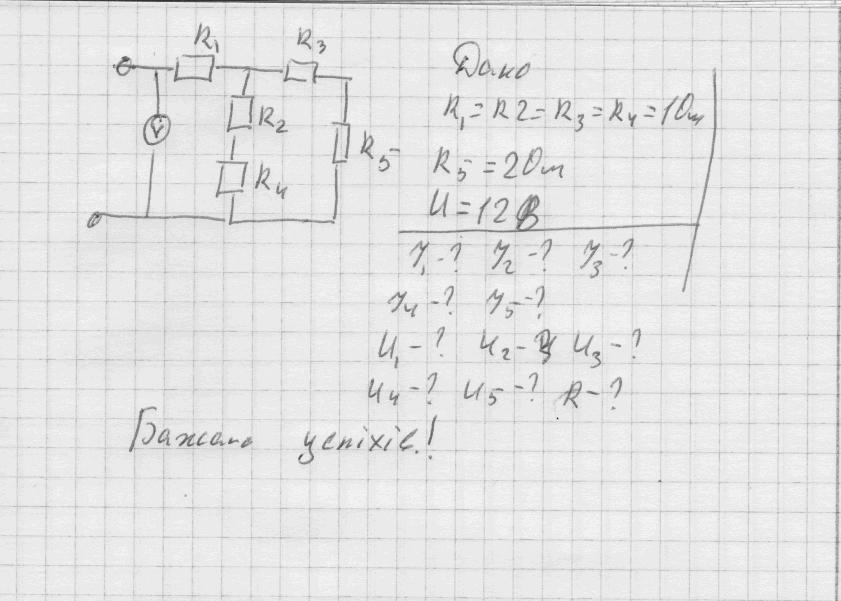 R1
R3
V
R2
R5
R4
Дано
R1 = R2 = R3 = R4 = 1 Ом
R5 = 2 Ом
U = 12 В
I1 - ? I2 - ? I3 - ?
I4 - ? I5 - ?
U1 - ? U2 - ? U3 - ?
U4 - ? U5 - ? R - ?
Бажаю успіхів!